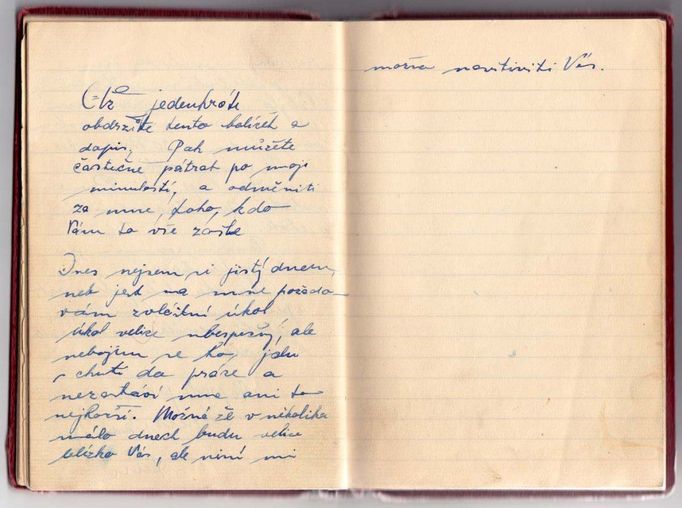 jedenkráte
obdržíte tento balíček a
dopis, Pak můžete
částečně pátrat po moji
minulosti, a odměniti
za mne, toho, kdo
Vám to vše zašle
Dnes nejsem si jistý dnem,
neb jest na mne požado-
vám zvláštní úkol
úkol velice nbespečný, ale
nebojím se ho, jdu
s chutí do práce a
nezastaví mne ani to
nejhorší. Možná že v několika
málo dnech budu velice
blízko Vás, ale není mi
možno navštíviti Vás.